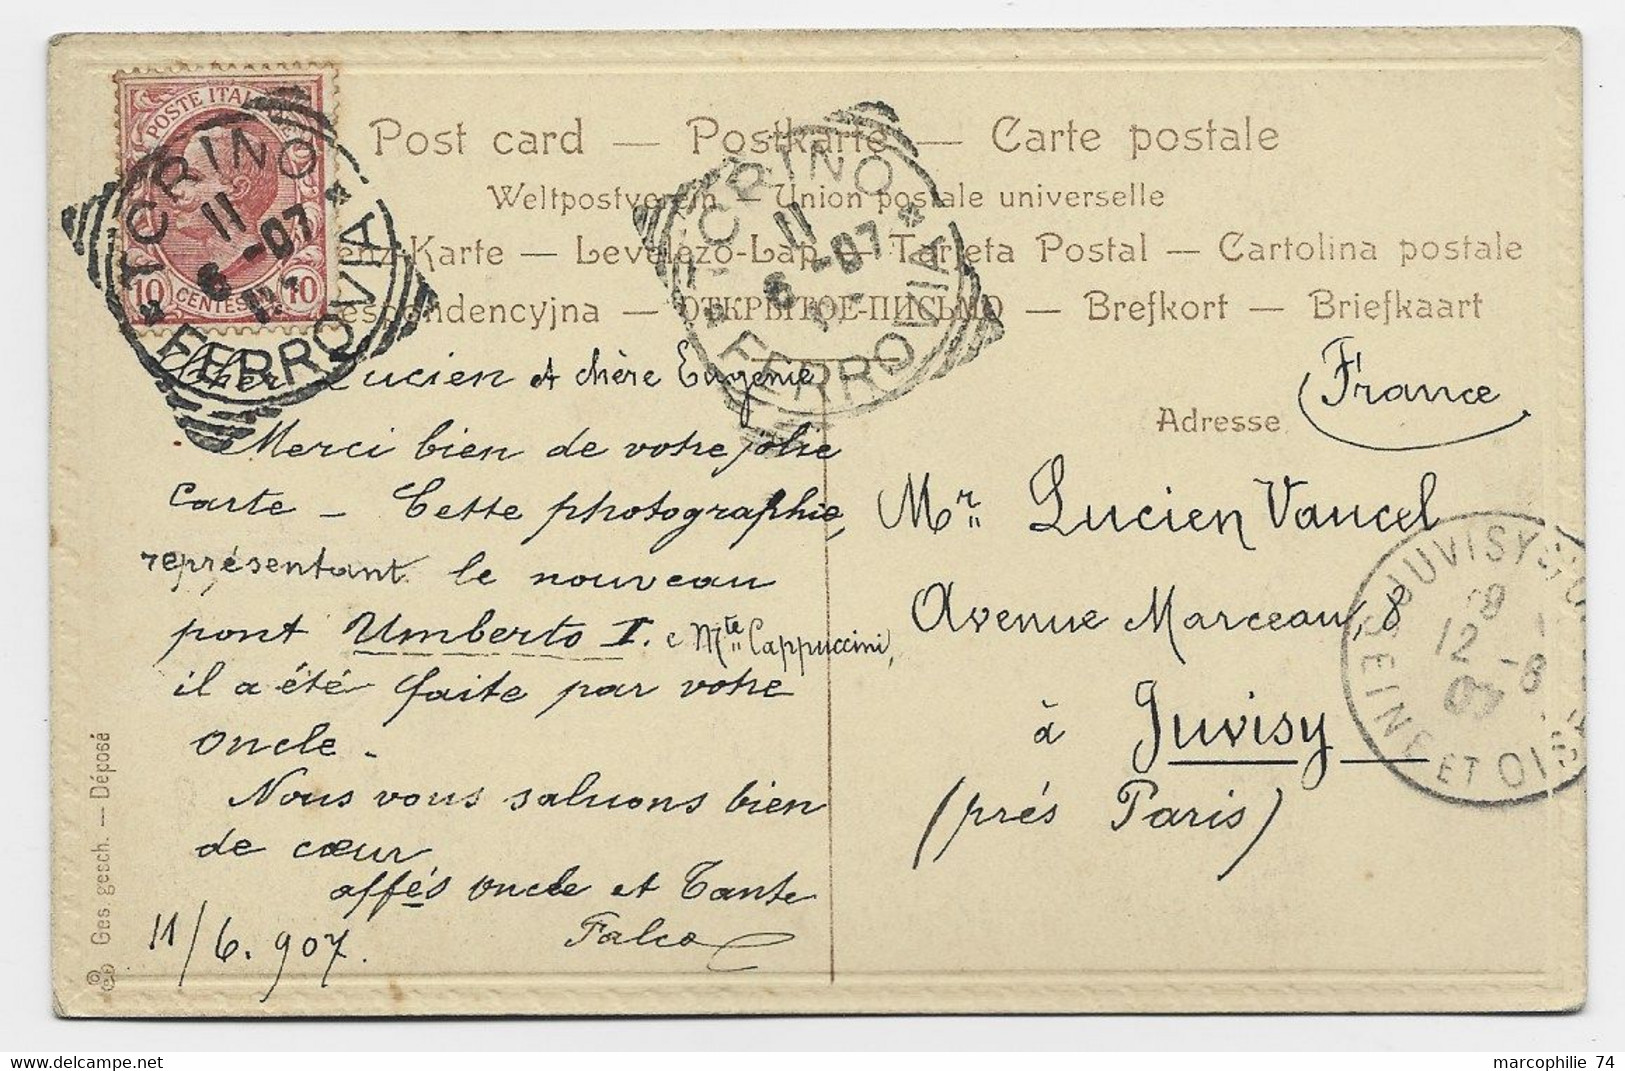 Post card — Postkarte — Carte postale
Weltpostverein — Union postale universelle
Karte — Levelezo-Lap — Tarjeta Postal — Cartolina postale
espondencyjna — ОТКРЫТОЕ-ПИСЬМО — Brefkort — Briefkaart
POSTE ITAL
10 CENTES 10
TORINO
11
6 -07
FERROVIA
TORINO
11
6 -07
FERROVIA
Cher Lucien et chère Eugenie
Merci bien de votre jolie
Carte - Cette photographie,
représentant le nouveau
pont Umberto I. e Mte Cappuccini,
il a été faite par votre
oncle.
Nous vous saluons bien
de cœur
affés oncle et Tante
Falco
11/6.907.
Adresse
France
Mr. Lucien Vaucel
Avenue Marceau, 8
à Juvisy
(prés Paris)
JUVISY
12 -6
07
SEINE ET OISE
Ges. gesch. — Déposé
marcophilie 74